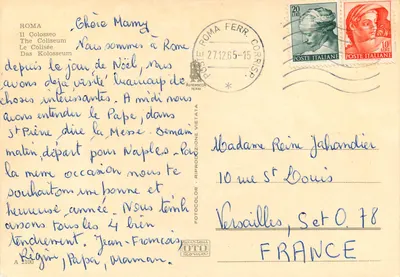 ROMA
Il Colosseo
The Coliseum
Le Colisée
Das Kolosseum
Chère Mamy
Nous sommes à Rome
depuis le jour de Noël, nous
avons déjà visité beaucoup de
choses intéressantes. A midi nous
avons entendu le Pape, dans
St Pierre, dire la Messe. Demain
matin départ pour Naples. Par
la même occasion nous te
souhaitons une bonne et
heureuse année. Nous t'em
brassons tous les 4 bien
tendrement. Jean-François,
Régine, Papa, Maman.
ROMA FERR. CORRISP.
27.12.65-15
20
POSTE ITALIANE
10
POSTE ITALIANE
FOTOCOLOR RIPRODUZIONE VIETATA
OTO
Madame Reine Jahandier
10 rue St Louis
Versailles, Set O. 78
FRANCE